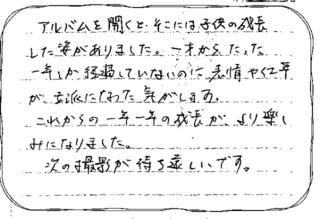 アルバムを開くとそこには子供の成長
した姿がありました。一才からたった
一年しか経過していないのに表情やくせ
が立派になった気がします。
これからの一年一年の成長がより楽し
みになりました。
次の撮影が待ち遠しいです。